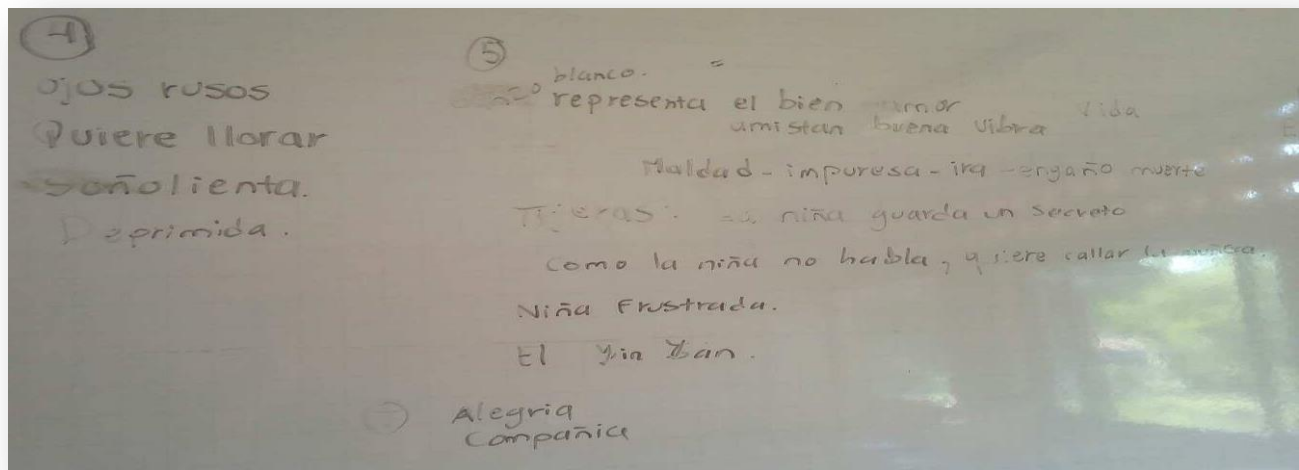 4
ojos rusos
Quiere llorar
soñolienta.
Deprimida.
5
blanco. =
representa el bien amor vida
amistan buena vibra
Maldad - impuresa - ira - engaño muerte
Tijeras: La niña guarda un secreto
como la niña no habla, quiere callar la muñeca.
Niña Frustrada.
El yin Yan.
Alegria
Compañia